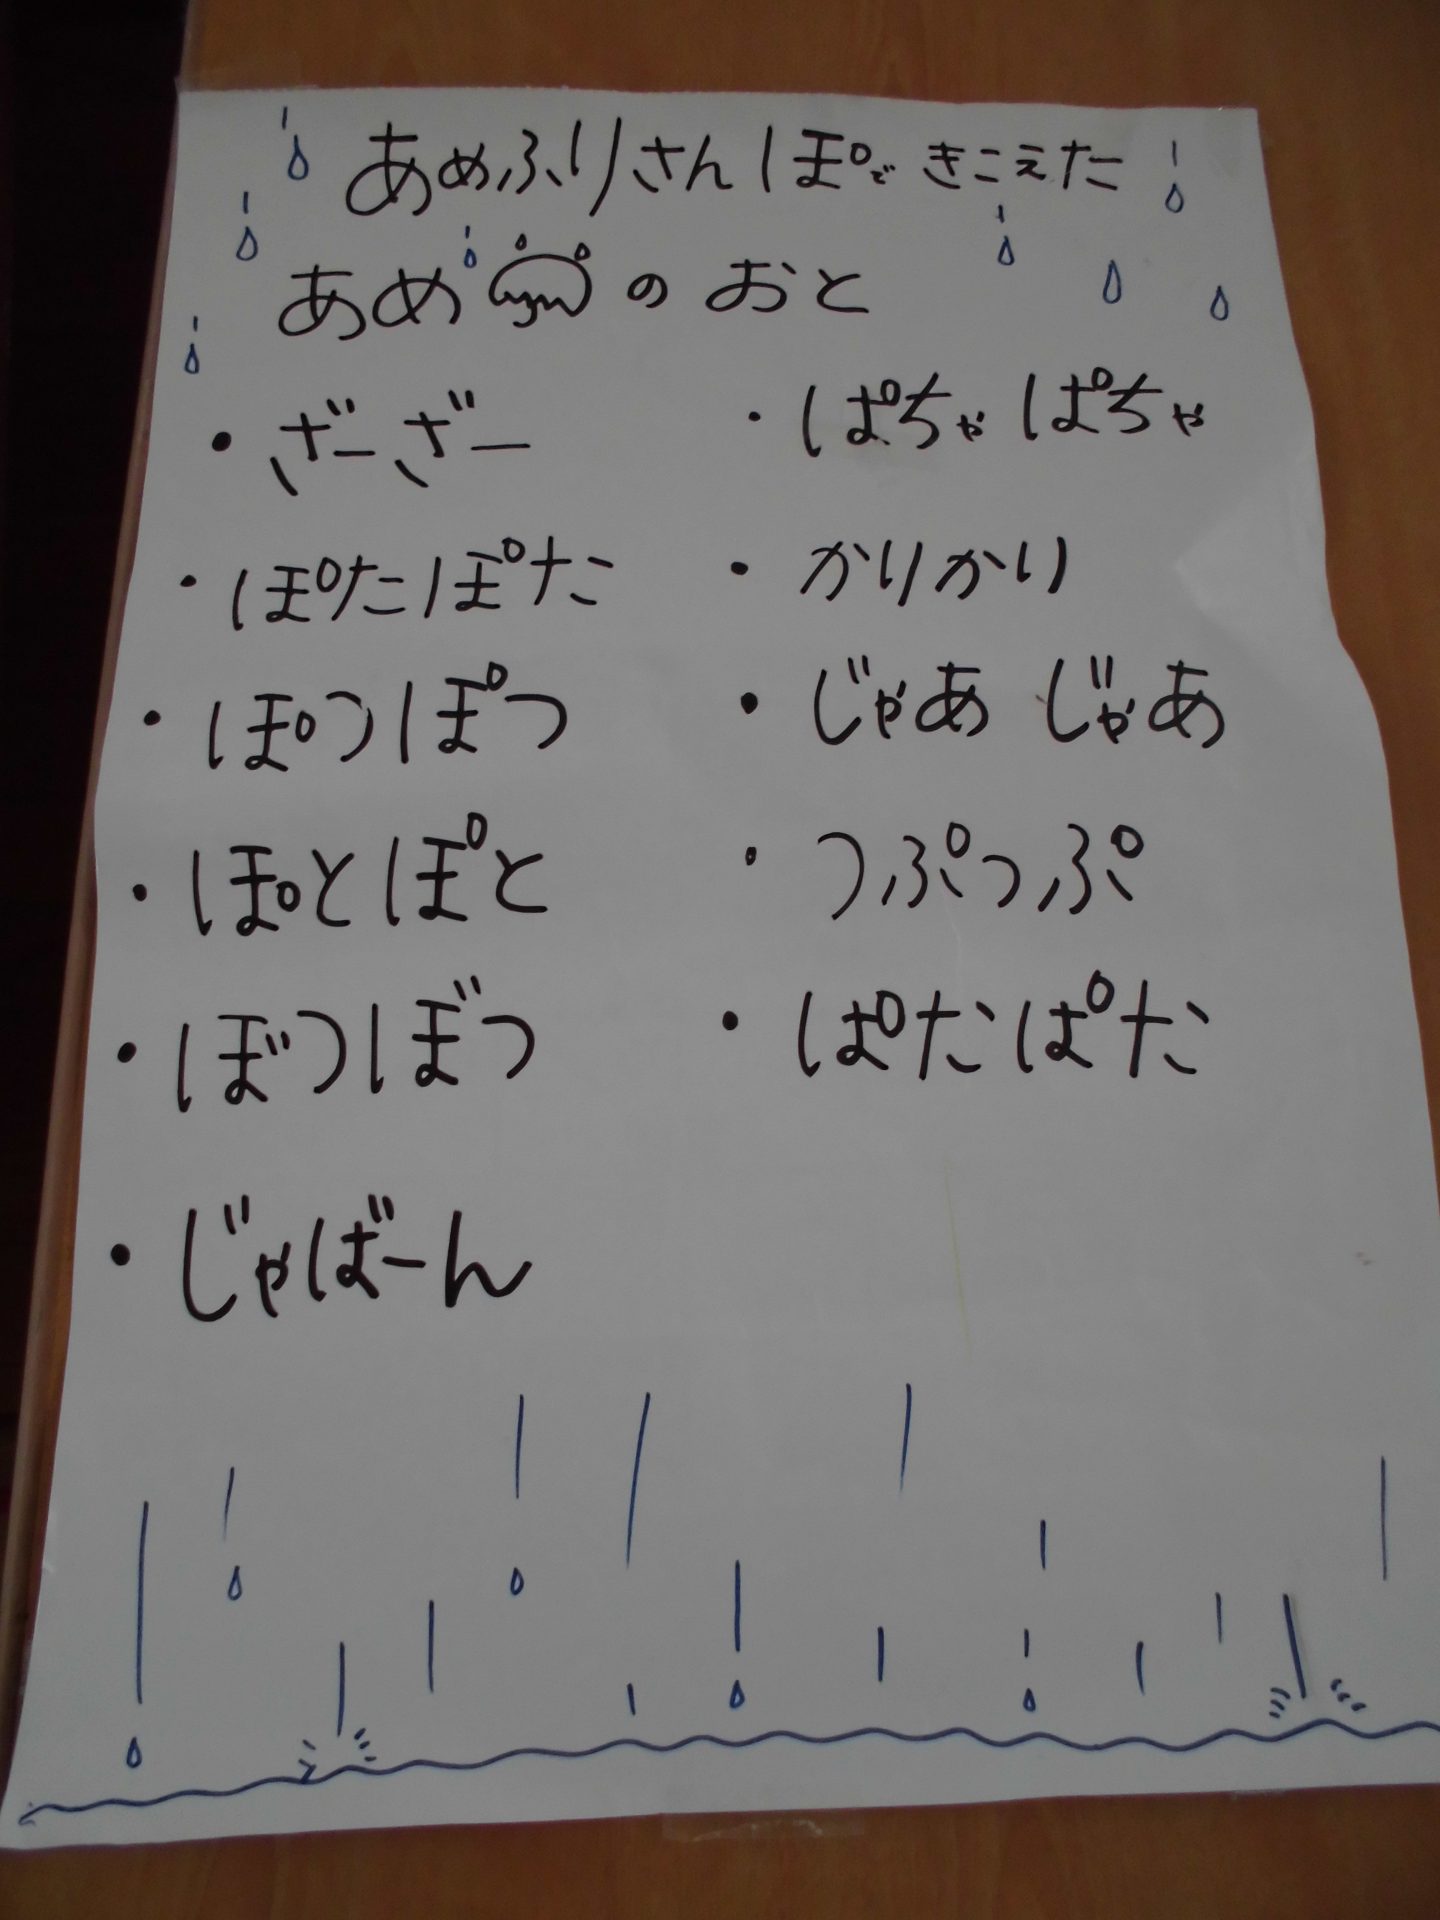 あめふりさんぽできこえた
あめのおと
・ざーざー
・ぽたぽた
・ぽつぽつ
・ぽとぽと
・ぼつぼつ
・じゃばーん
・ぱちゃぱちゃ
・かりかり
・じゃあ じゃあ
・つぷつぷ
・ぱたぱた